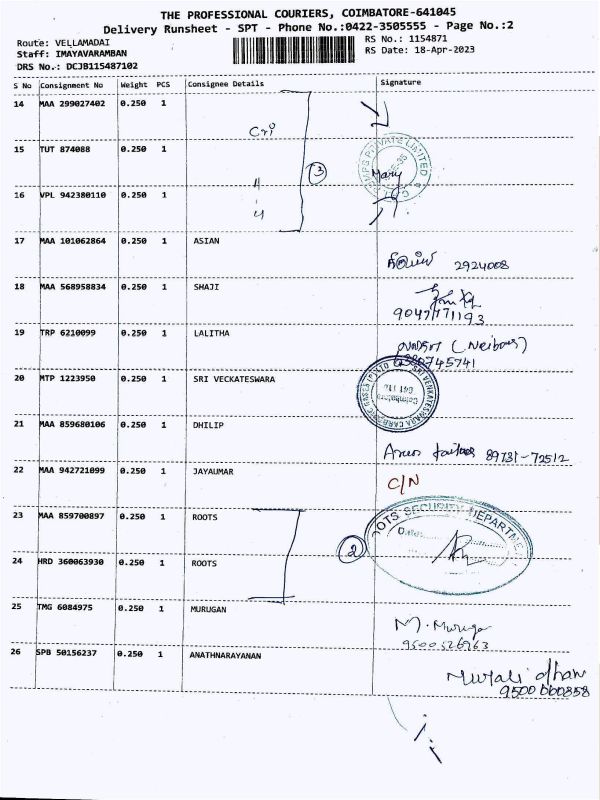 THE PROFESSIONAL COURIERS, COIMBATORE-641045
Delivery Runsheet - SPT - Phone No.:0422-3505555 - Page No.:2
Route: VELLAMADAI
RS No.: 1154871
Staff: IMAYAVARAMBAN
RS Date: 18-Apr-2023
DRS No.: DCJB115487102
S No Consignment No Weight PCS Consignee Details Signature
14 MAA 299027402 0.250 1
Cri
15 TUT 874088 0.250 1
PRIVATE LIMITED
3
Mary
16 VPL 942380110 0.250 1
17 MAA 101062864 0.250 1 ASIAN
2924008
18 MAA 568958834 0.250 1 SHAJI
9047771193
19 TRP 6210099 0.250 1 LALITHA
(Neibour)
20 MTP 1223950 0.250 1 SRI VECKATESWARA
SRI VENKATESWARA CARBONIC GASES (P) LTD
Coimbatore
641 110
21 MAA 859680106 0.250 1 DHILIP
89731-72512
22 MAA 942721099 0.250 1 JAYAUMAR
C/N
23 MAA 859700897 0.250 1 ROOTS
ROOTS SECURITY DEPARTMENT
2
24 HRD 360063930 0.250 1 ROOTS
25 TMG 6084975 0.250 1 MURUGAN
M. Muruga
9500526763
26 SPB 50156237 0.250 1 ANATHNARAYANAN
Murali dhar
9500060858